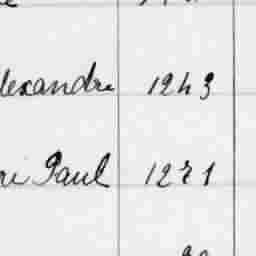 lexandre 1243
re Paul 1271